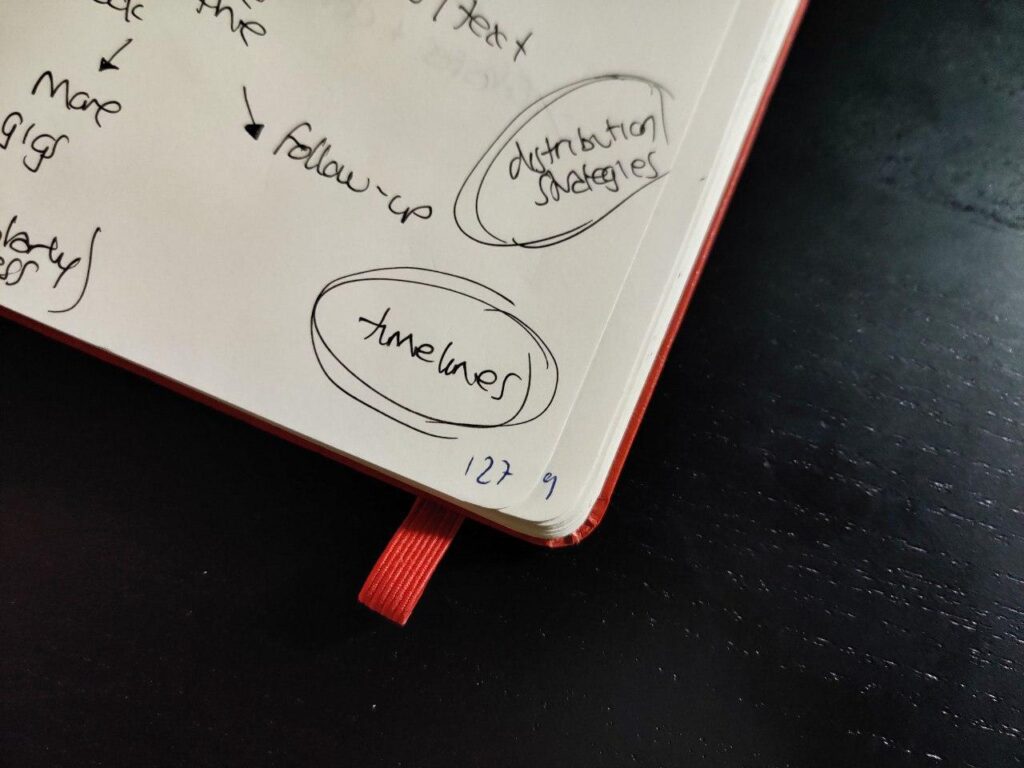 the
text
More
gigs
Follow-up
distribution
strategies
timelines
127
9